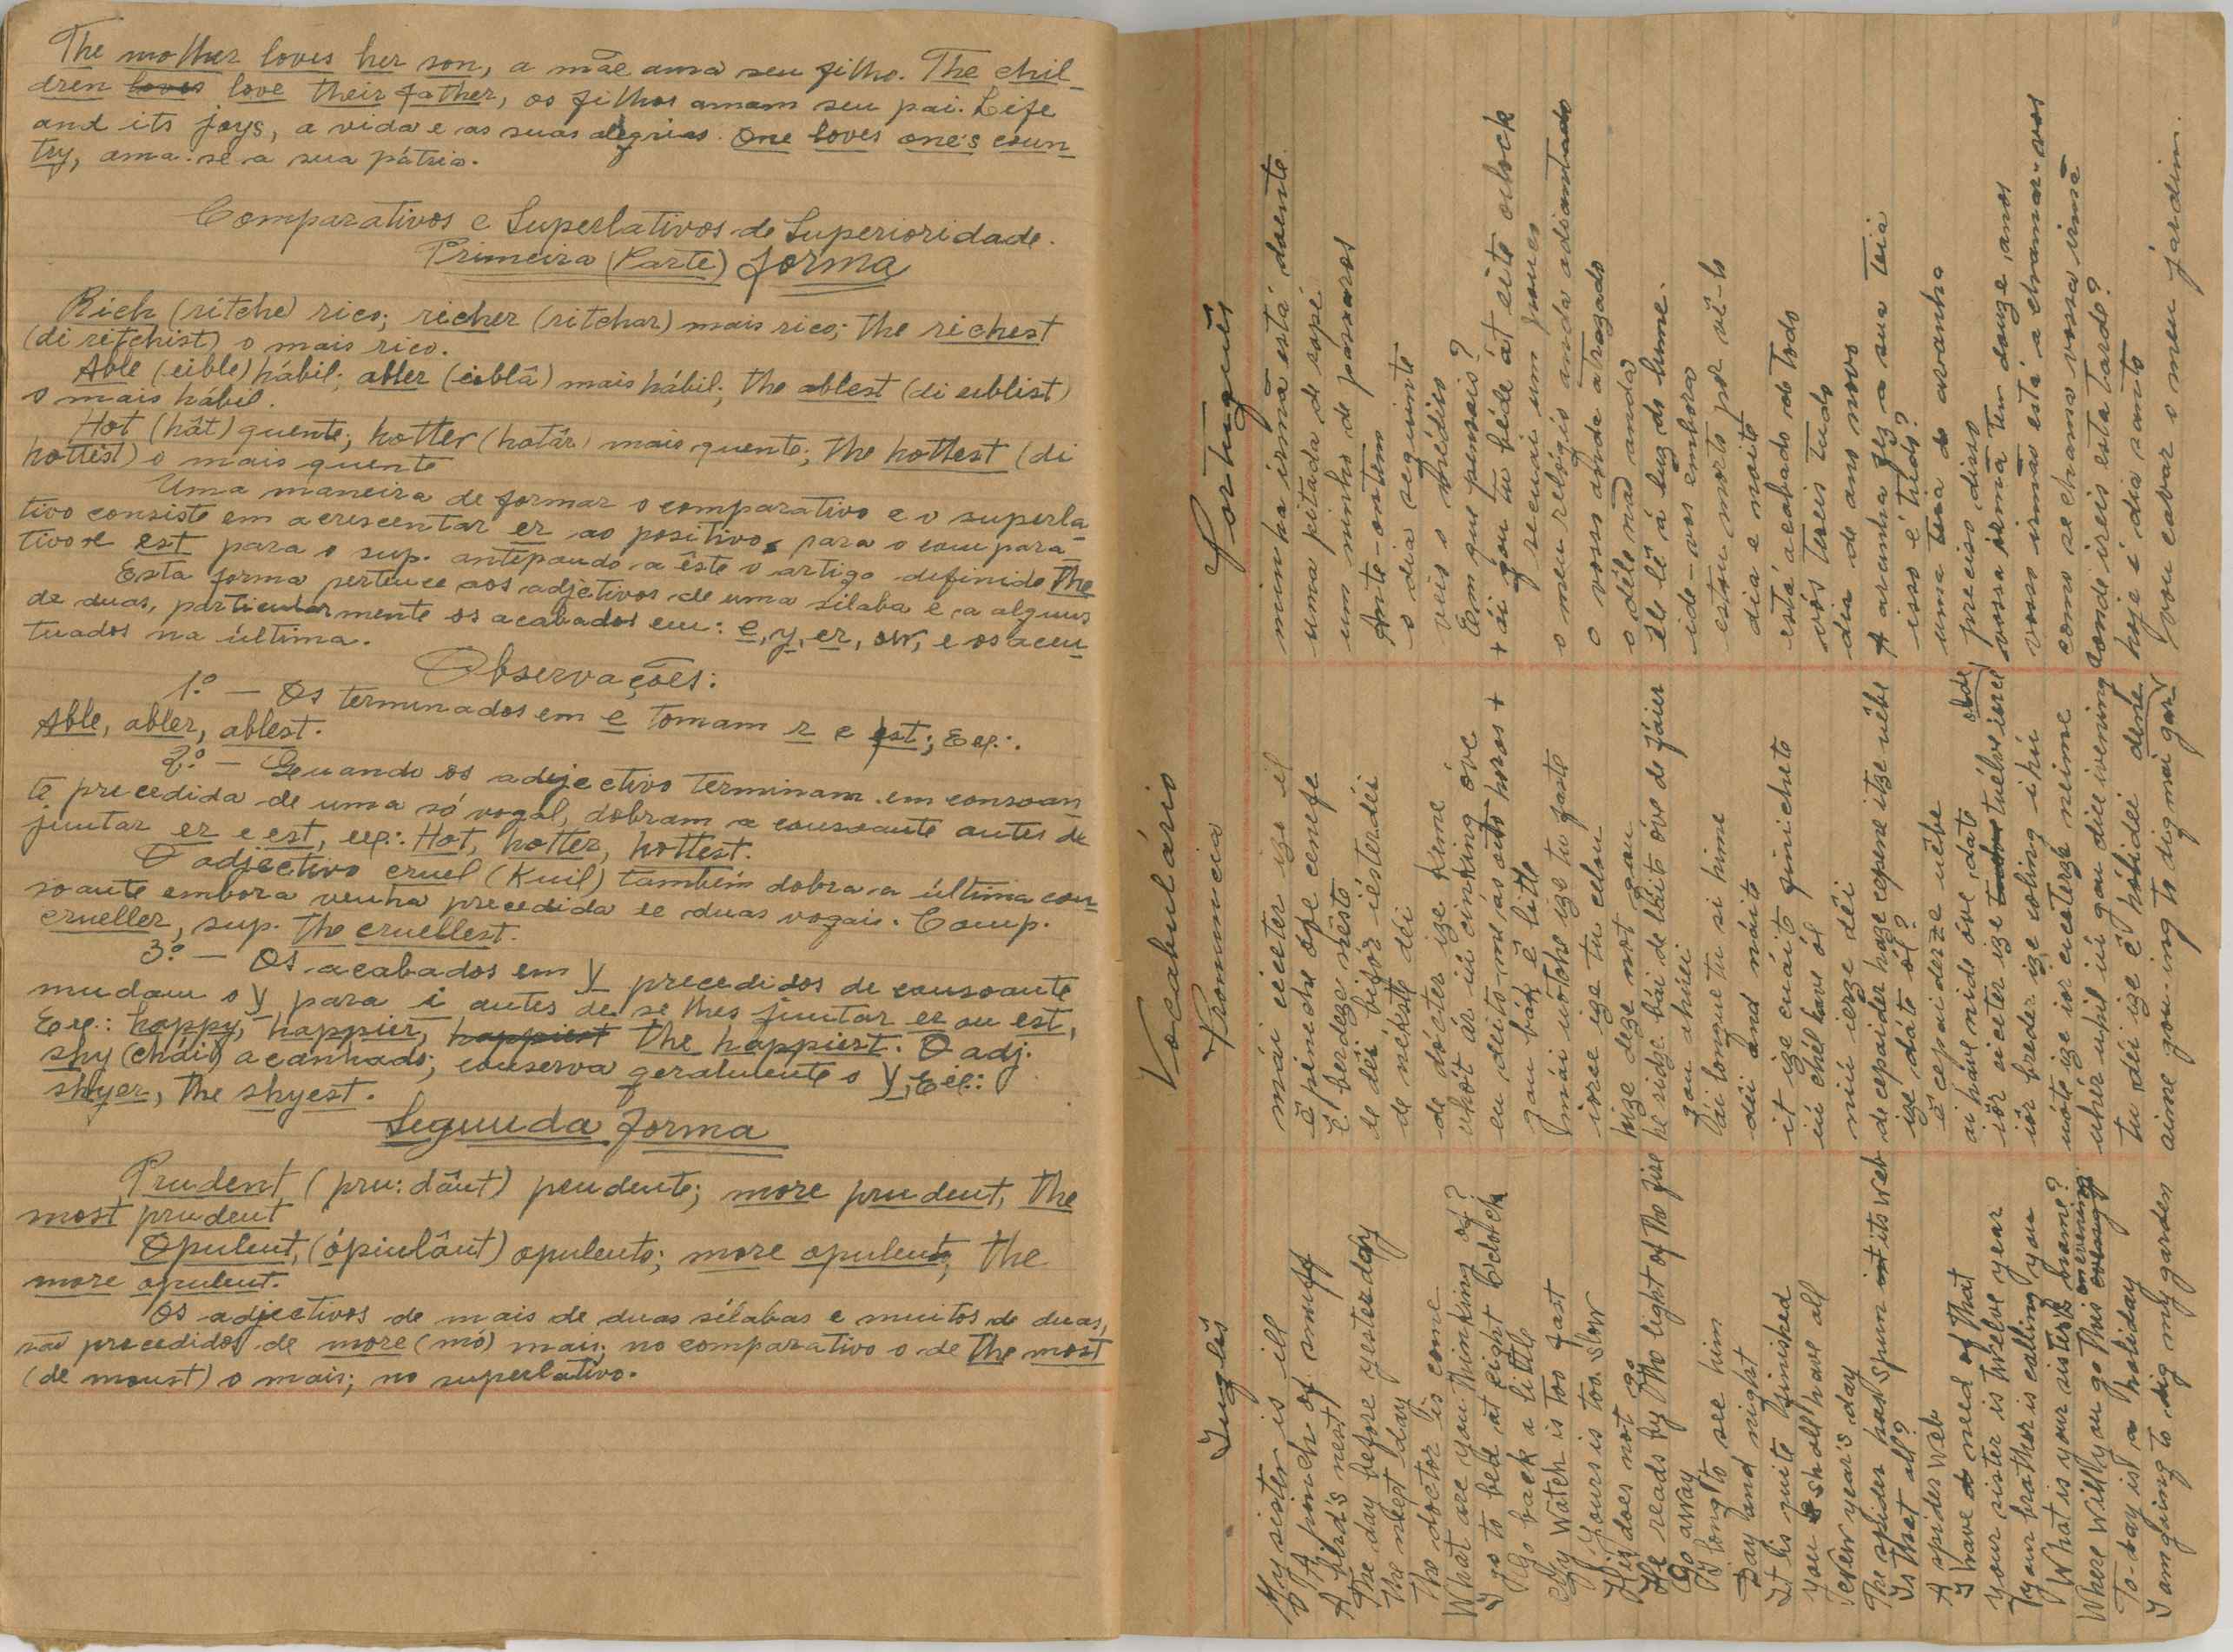 The mother loves her son, a mãe ama seu filho. The chil-
dren loves love their father, os filhos amam seu pai. Life
and its joys, a vida e as suas alegrias. One loves one's coun-
try, ama-se a sua pátria.
Comparativos e Superlativos de Superioridade.
Primeira (Parte) forma
Rich (ritche) rico; richer (ritchar) mais rico; the richest
(di ritchist) o mais rico.
Able (eible) hábil; abler (eiblâ) mais hábil; the ablest (di eiblist)
o mais hábil.
Hot (hât) quente; hotter (hotâr) mais quente; the hottest (di
hottist) o mais quente
Uma maneira de formar o comparativo e o superla-
tivo consiste em acrescentar er ao positivo, para o compara-
tivo e est para o sup. antepondo a êste o artigo definido the
Esta forma pertence aos adjetivos de uma silaba e a alguns
de duas, particularmente os acabados em: e, y, er, ow, e os acen-
tuados na última.
Observações:
1.º — Os terminados em e tomam r e est; Ex.:
Able, abler, ablest.
2.º — Quando os adjectivo terminam em consoan-
te precedida de uma só vogal, dobram a consoante antes de
juntar er e est, ex.: Hot, hotter, hottest.
O adjectivo cruel (Kuil) também dobra a última con-
soante embora venha precedida de duas vogais. Comp.
crueller, sup. the cruellest.
3.º — Os acabados em y precedidos de consoante
mudam o y para i antes de se lhes juntar er ou est,
Ex.: happy, happier, happiest the happiest. O adj.
shy (chái) acanhado; conserva geralmente o y, Ex.:
shyer, the shyest.
Segunda forma
Prudent (pru:dânt) prudente; more prudent, the
most prudent
Opulent, (ópiulânt) opulento; more opulent, the
more opulent.
Os adjectivos de mais de duas sílabas e muitos de duas,
são precedidos de more (mó) mais; no comparativo o de the most
(de moust) o mais; no superlativo.
Vocabulário
Inglês Pronuncia Português
My sister is ill mái cicter ize il minha irmã está doente.
A pinch of snuff ê pinche ofe cenefe uma pitada de rapé
A bird's nest ê berdeze nésto um ninho de passaros
The day before yesterday de dêi bifór iésterdêi Ante-ontem
The next day de nekste dêi o dia seguinte
The doctor is come de dócter ize kême veis o médico
What are you thinking of? uhót ár iú cinking óve Em que pensais?
I go to bed at eight o'clock horas + + ái gou tu béde át eito oclock
Go back a little gou bák ê litle recuai um pouco
My watch is too fast mái uótche ize tu faste o meu relógio anda adiantado
Yours is too slow iorce ize tu celou o vosso anda atrazado
His does not go hize deze not gou o dêle não anda
He reads by the light of the fire he ridze bái de láite óve de fáier êle lê á luz do lume.
Go away gou auêi ide-vos embora
I long to see him ái longue tu si hime estou morto por vê-lo
Day and night dêi and náite dia e noite
It is quite finished it ize cuáite finichete está acabado de todo
You shall have all iú chél have ól vós tereis tudo
New year's day niú ierze dêi dia de ano novo
The spider has spun its web de cepaider haze cepene itze uêbe A aranha fez a sua teia
Is that all? ize dáte ól? isso é tudo?
A spider web ê cepaiderze uêbe uma teia de aranha
I have need of that ai háve nide óve dáte preciso disso
your sister is twelve year iór cicter ize tuélve ierce vossa irmã tem douze anos
Your brother is calling you iór breder ize coling iú vosso irmão está a chamar-vos
What is your sister's name? uóte ize iór cicterze neime como se chama vossa irmã
Where will you go this evening uhér uhil iú gou dice ivening aonde ireis esta tarde?
To-day is a holiday tu dêi ize ê hólidêi hoje é dia santo
I am going to dig my garden aime gou-ing to dig mái gar dene vou cavar o meu jardim.